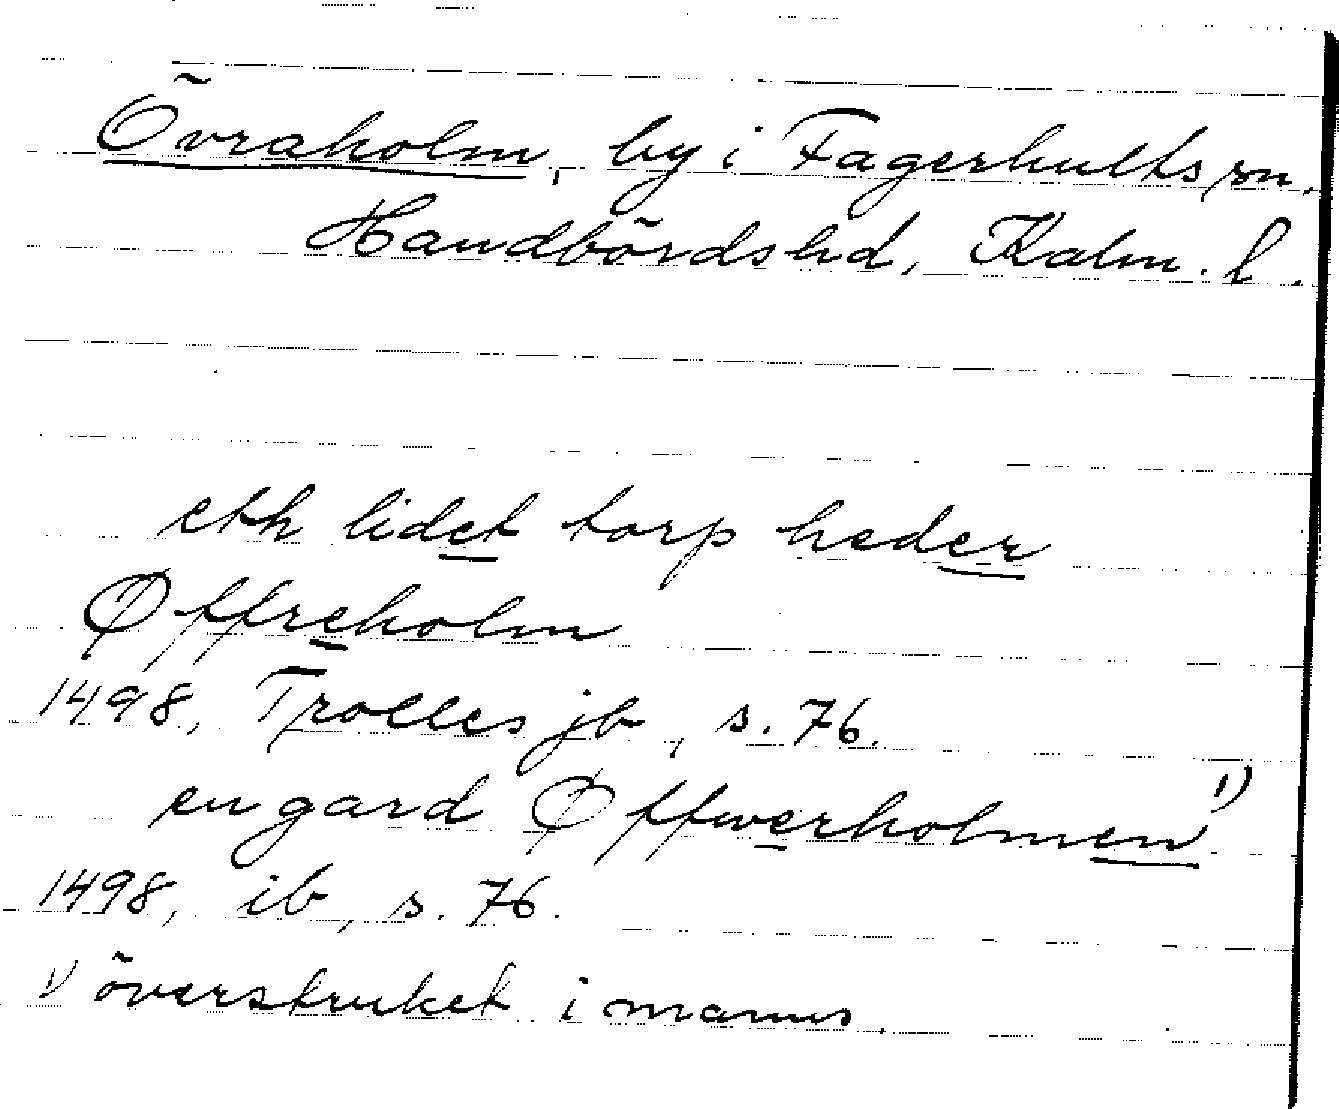 Övraholm, by i Fagerhults sn.
Handbörds hd, Kalm. l.
eth lidet torp heder
Øffreholm
1498, Trolles jb, s. 76.
en gard Øffwerholmen 1)
1498, ib, s. 76.
1) överstruket i manus.